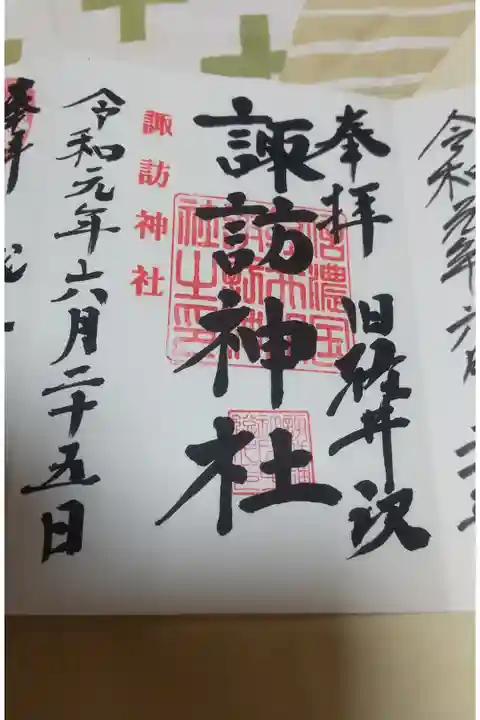 令和元年六月
奉拝
旧軽井沢
諏訪神社
諏訪神社
令和元年六月二十五日
奉拝